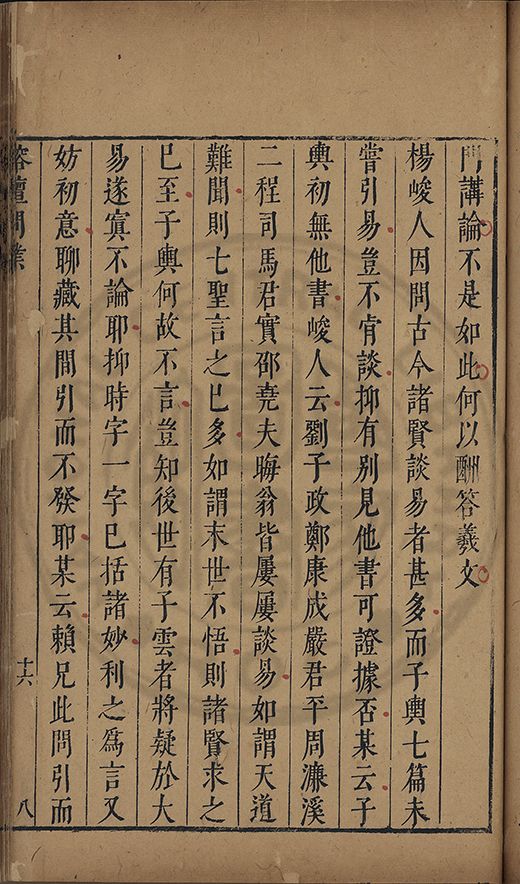 門講論不是如此何以酬答羲文
楊峻人因問古今諸賢談易者甚多而子輿七篇未
嘗引易豈不肯談抑有别見他書可證據否某云子
輿初無他書峻人云劉子政鄭康成嚴君平周濂溪
二程司馬君實邵堯夫晦翁皆屢屢談易如謂天道
難聞則七聖言之已多如謂末世不悟則諸賢求之
已至子輿何故不言豈知後世有子雲者將疑於大
易遂寘不論耶抑時字一字已括諸妙利之為言又
妨初意聊藏其間引而不發耶某云賴兄此問引而
榕壇問業
十六
八